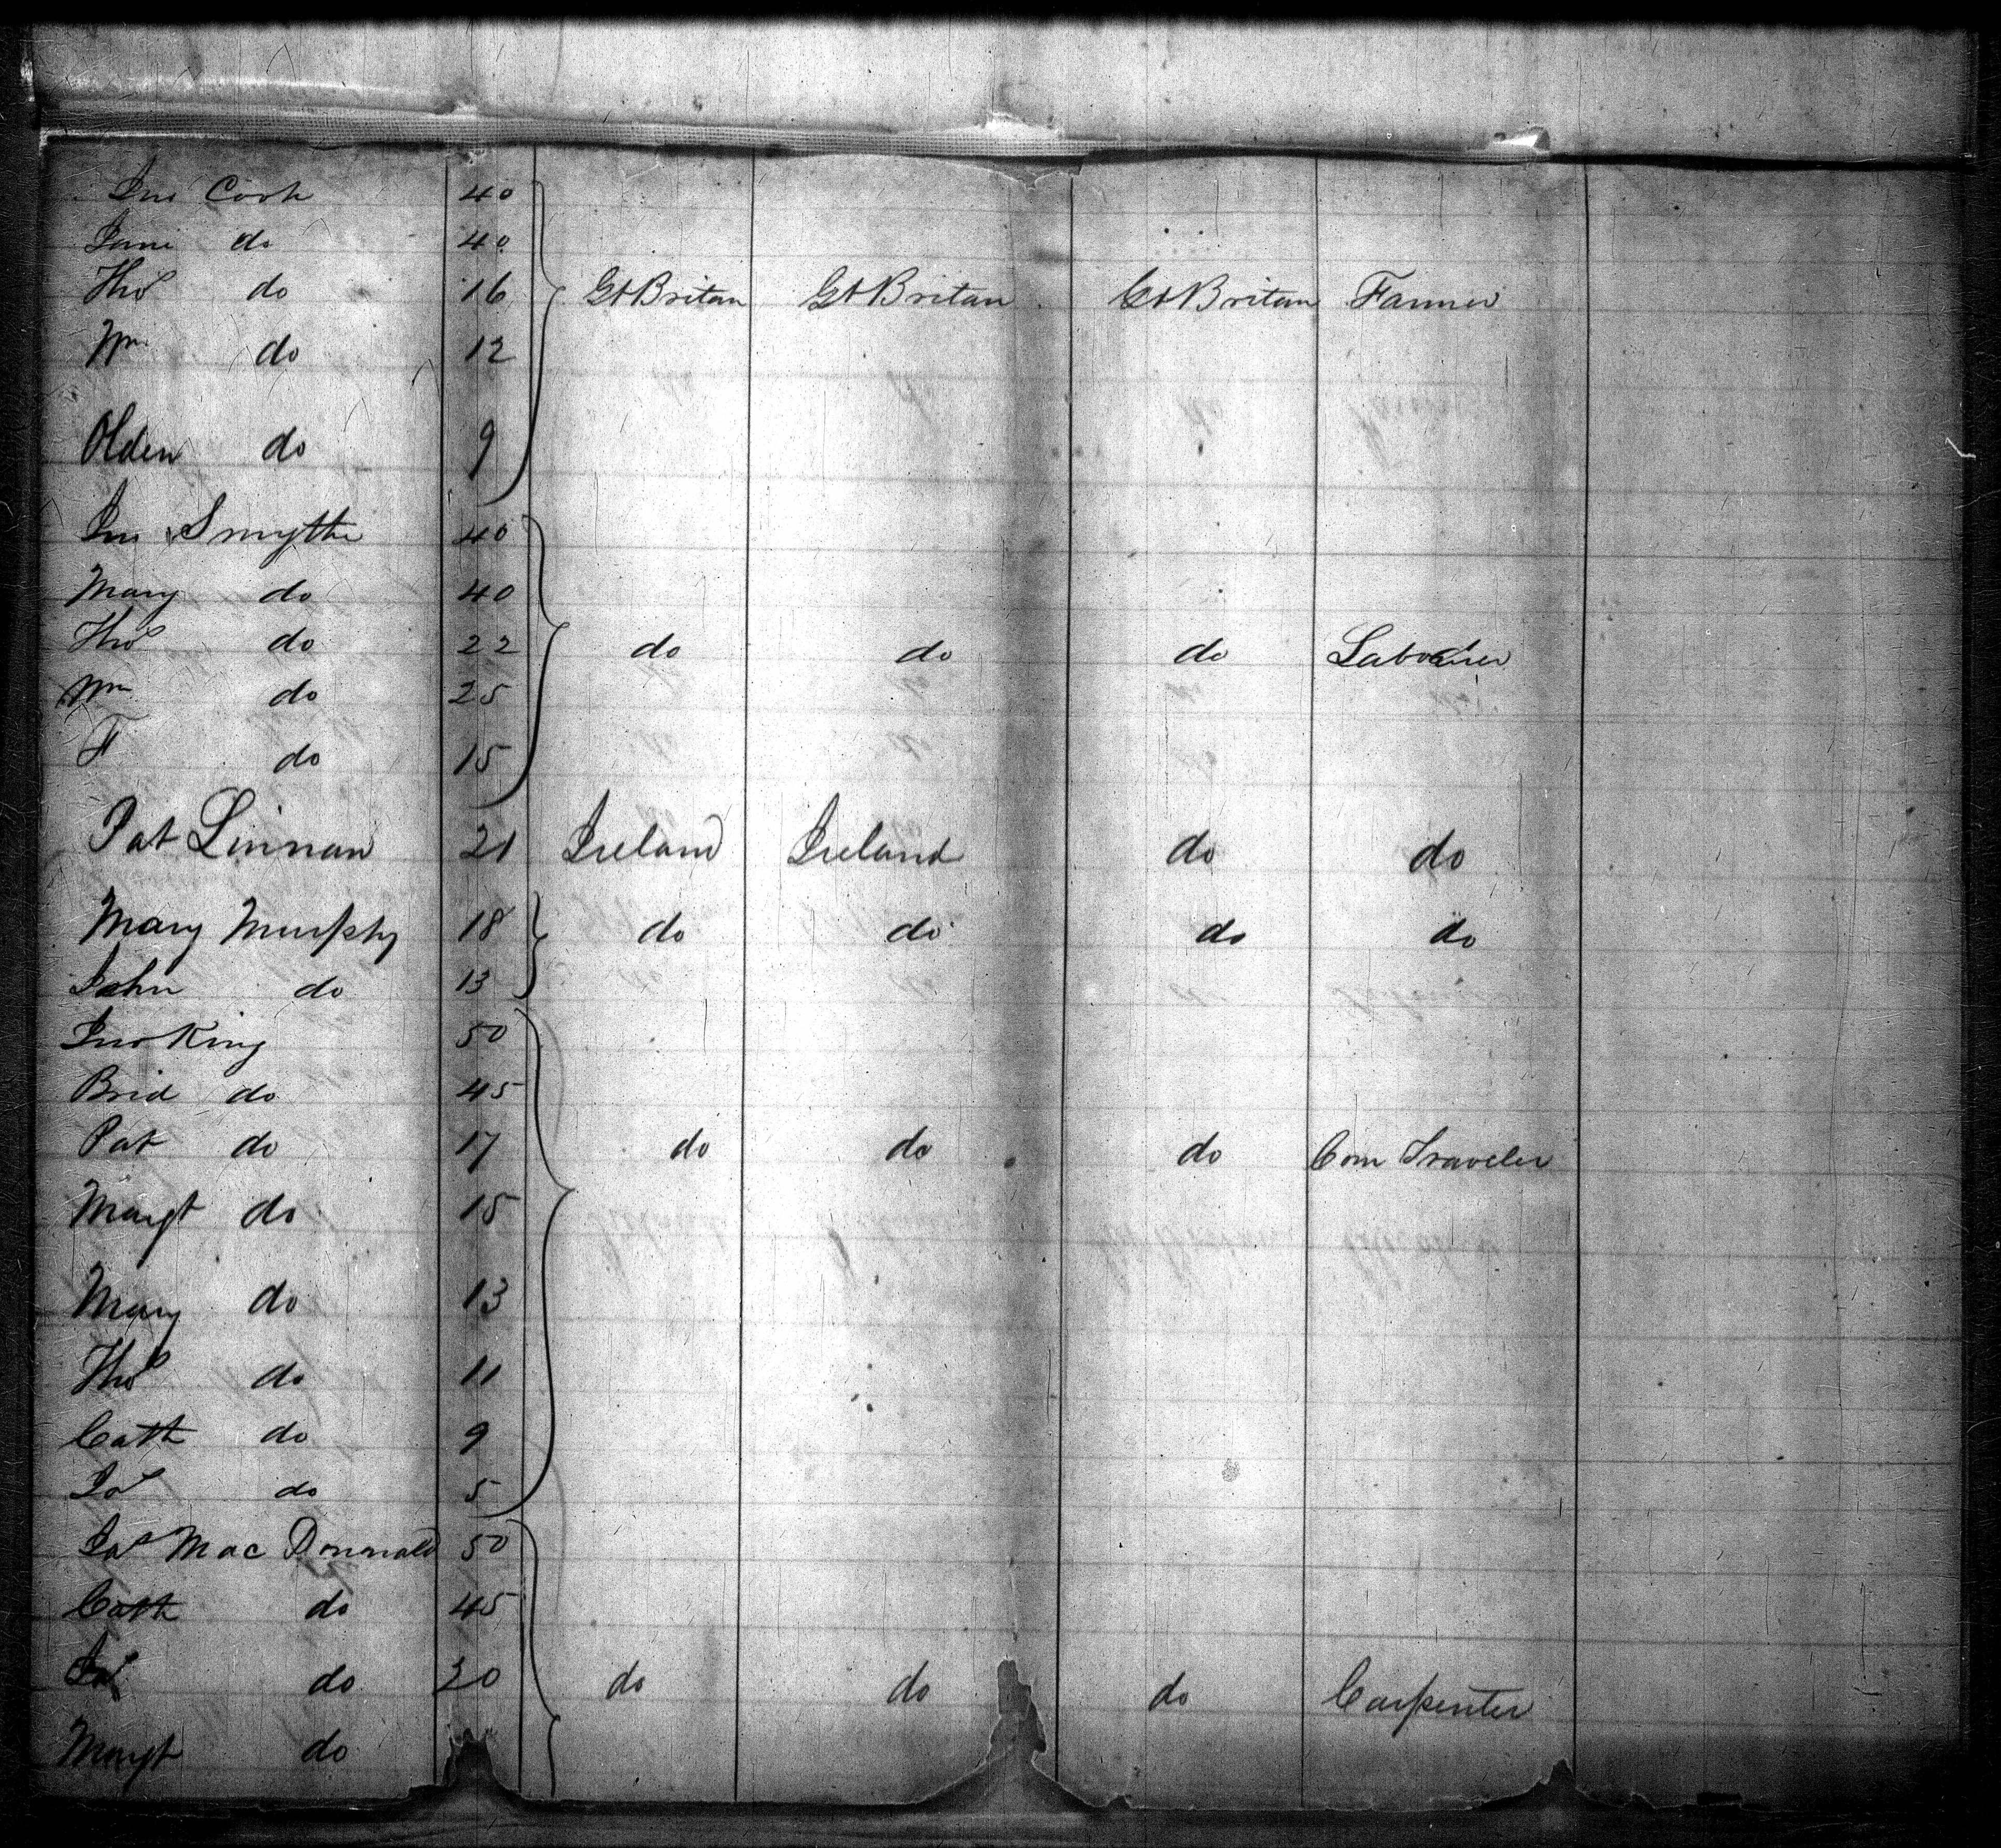 Jno Cook 40
Jane do 40
Thos do 16 Gt Britan Gt Britan Gt Britan Farmer
Wm do 12
Olden do 9
Jno Smythe 40
Mary do 40
Thos do 22 do do do Labourer
Wm do 25
F do 15
Pat Linnan 21 Ireland Ireland do do
Mary Murphy 18 do do do do
John do 13
Jno King 50
Brid do 45
Pat do 17 do do do Com Traveler
Margt do 15
Mary do 13
Thos do 11
Cath do 9
Jas do 5
Jas Mac Donnald 50
Cath do 45
do 20 do do do Carpenter
Margt do